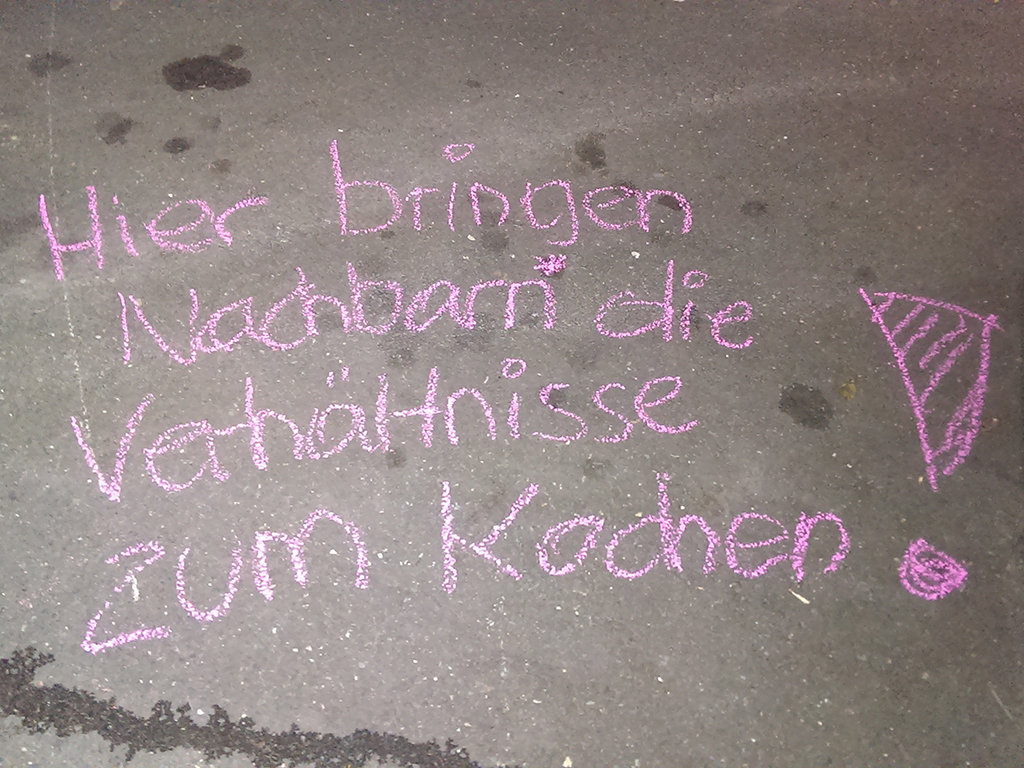 Hier bringen
Nachbarn die
Verhältnisse
zum Kochen!